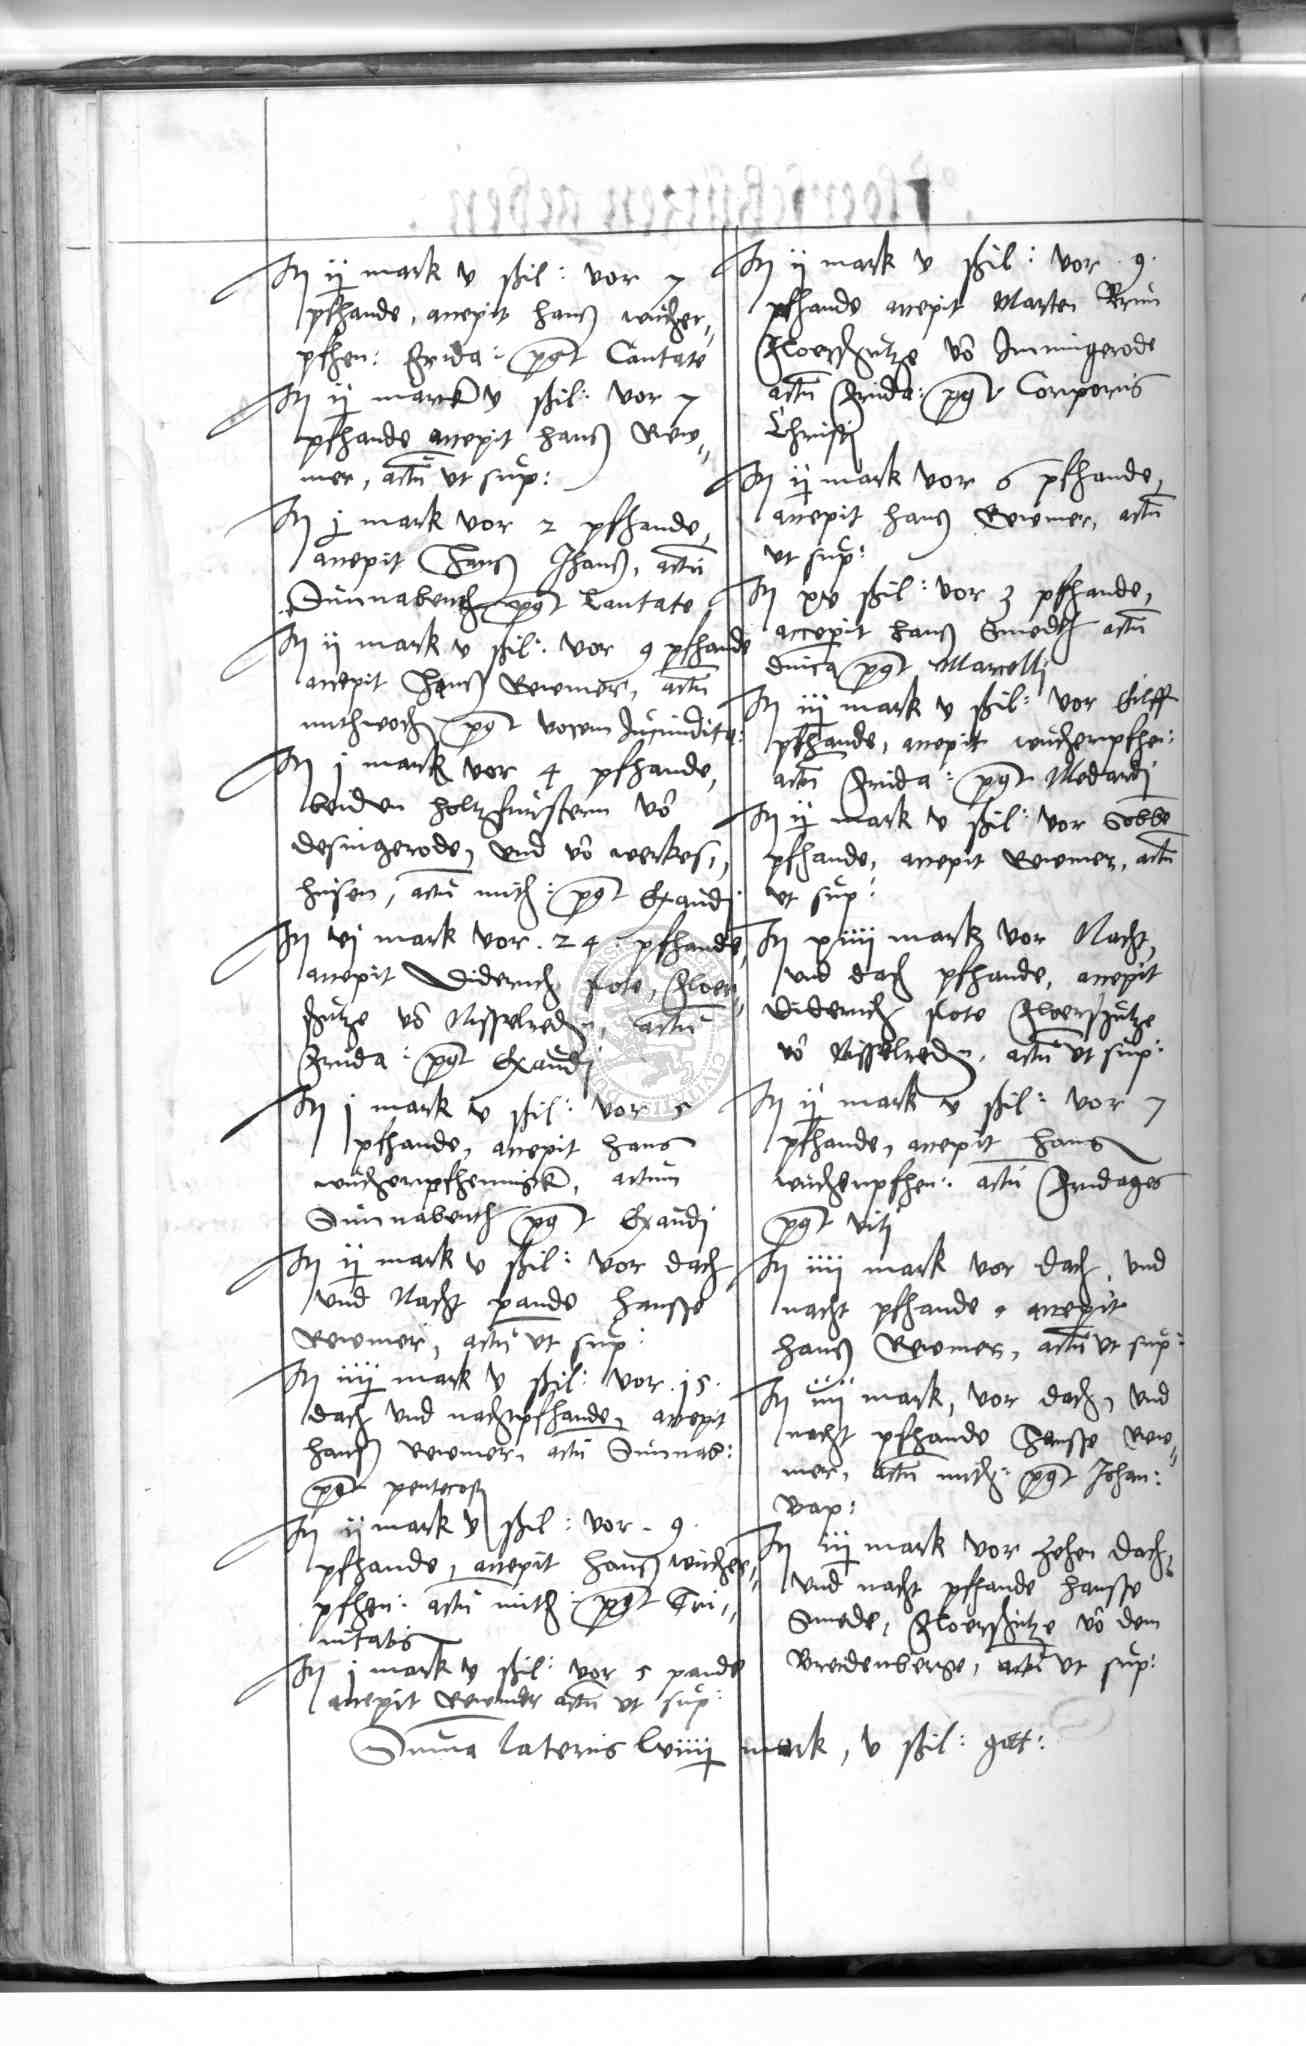 It ij mark v ßil: vor 7
pfhande, accepit hanß wucher„
pfhen: Frida: post Cantate
It ij mark v ßil: vor 7
pfhande accepit hanß Rew„
mer, actu ut sup:
It j mark vor 2 pfhande,
accepit Hanß Jhanß, actu
Sunnabent post Cantate
It ij mark v ßil: vor 9 pfhande
accepit Hanß Rewmer, actu
mithwoch post vocem Jucundita:
It j mark vor 4 pfhande,
beiden holtzfurstern vo
desingerode, und vo werkes„
husen, actu mith: post Exaudi
It vj mark vor . 24 . pfhande,
accepit Diderich flote, Floer„
schutze vo Nisselreden, actu
Frida: post Exaudi
It j mark v ßil: vor 5
pfhande, accepit hans
wucherpfhennigk, actum
Sunnabent post Exaudi
It ij mark v ßil: vor dach
und Nacht pande hansse
Rewmer, actu ut sup:
It iiij mark v ßil: vor . 15 .
dach und nachtpfhande, accepit
hanß Rewmer, actu Sunnab:
post pentecost
It ij mark v ßil: vor . 9 .
pfhande, accepit hanß wucher„
pfhen: actu mith: post Tri„
nitatis
It j mark v ßil: vor 5 pande
accepit Rewmer actu ut sup:
It ij mark v ßil: vor . 9 .
pfhande accepit Marten
Floerschutze vo Immigerode
actu Frida: post Corporis
Christi
It ij mark vor 6 pfhande,
accepit hanß Rewmer, actu
ut sup:
It xv ßil: vor 3 pfhande,
accepit hanß Smedth actu
dnica post Marcelli
It iij mark v ßil: vor Eilff
pfhande, accepit wucherpfhen:
actu Frida: post Medardi
It ij mark v ßil: vor Sobbe
pfhande, accepit Rewmer, actu
ut sup:
It xiiij mark vor Nacht,
und dach pfhande, accepit
Diderich flote Floerschutze
vo Nisselreden, actu ut sup:
It ij mark v ßil: vor 7
pfhande, accepit hans
wucherpfhen: actu Fridages
post viti
It iiij mark vor dach, und
nacht pfhande, accepit
hanß Rewmer, actu ut sup:
It iiij mark, vor dach, und
nacht pfhande Hansse Rew„
mer, actu mith: post Johan:
Bap:
It iij mark vor zehen dach,
und nacht pfhande hansse
Smede, Floerschutze vo dem
Breidenberge, actu ut sup:
Suma lateris lviiij mark, v ßil: gott: